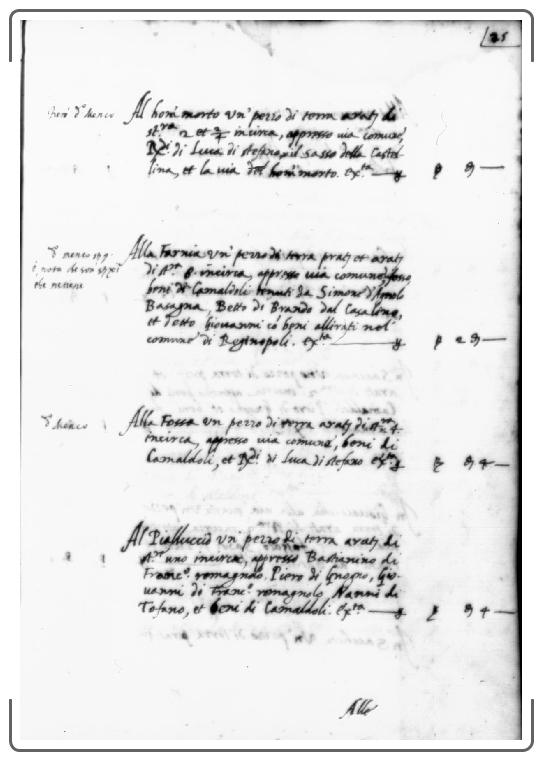 25
Al hom' morto un' pezzo di terra arat.
st.ra 2 et 2/4 incirca, appresso via comune
R.di di Luca di stefano, il sasso della Castel-
lina, et la via del hom' morto. ex.ta
Alla Farnia un' pezzo di terra prat. et arat.
di st.ra 8. incirca, appresso via comune, fosso
beni di Camaldoli tenuti da Simone d'Agnolo
Basagna, Betto di Brando dal Casalino,
et detto Giovanni co' beni allirati nel
comune di Reginopoli. ex.ta 2
nota che son
che ne tiene
Alla Fossa un pezzo di terra arat. di st.ra 4
incirca, appresso via comune, beni di
Camaldoli, et R.di di Luca di stefano ex.ta
d. Menco
Al Pialluccio un' pezzo di terra arat. di
st.ra uno incirca, appresso Bastianino di
Franc.o romagnolo, Piero di Gnogno, Gio-
vanni di Franc.o romagnolo, Nanni di
Tofano, et beni di Camaldoli. ex.ta
Alla